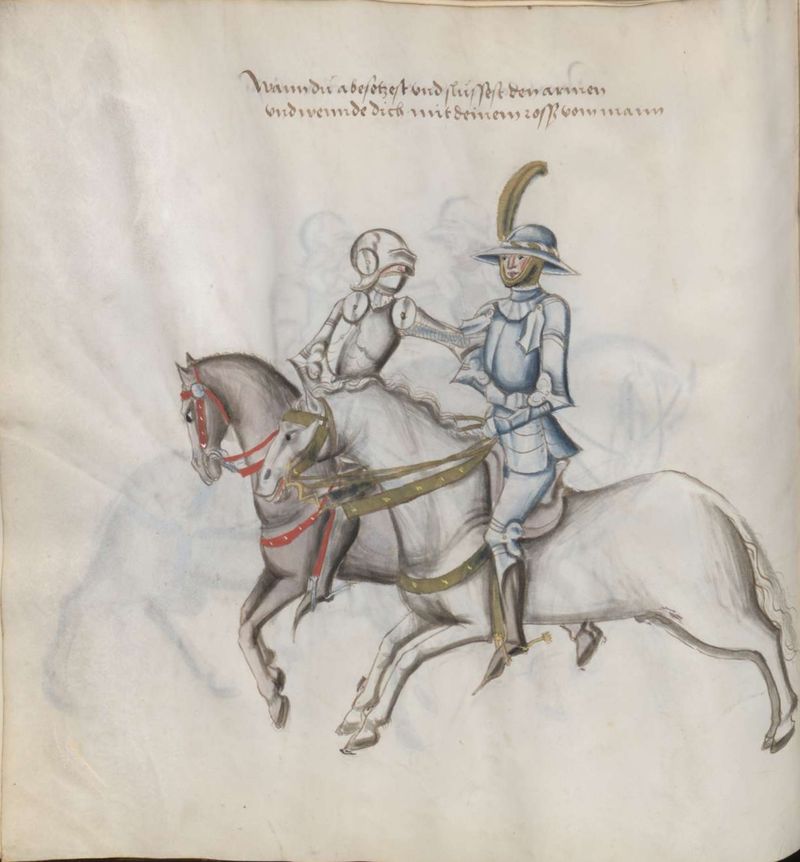 Wann du abesetzest vnd slussest den armen
vnd wennde dich mit deinem ross vom mann